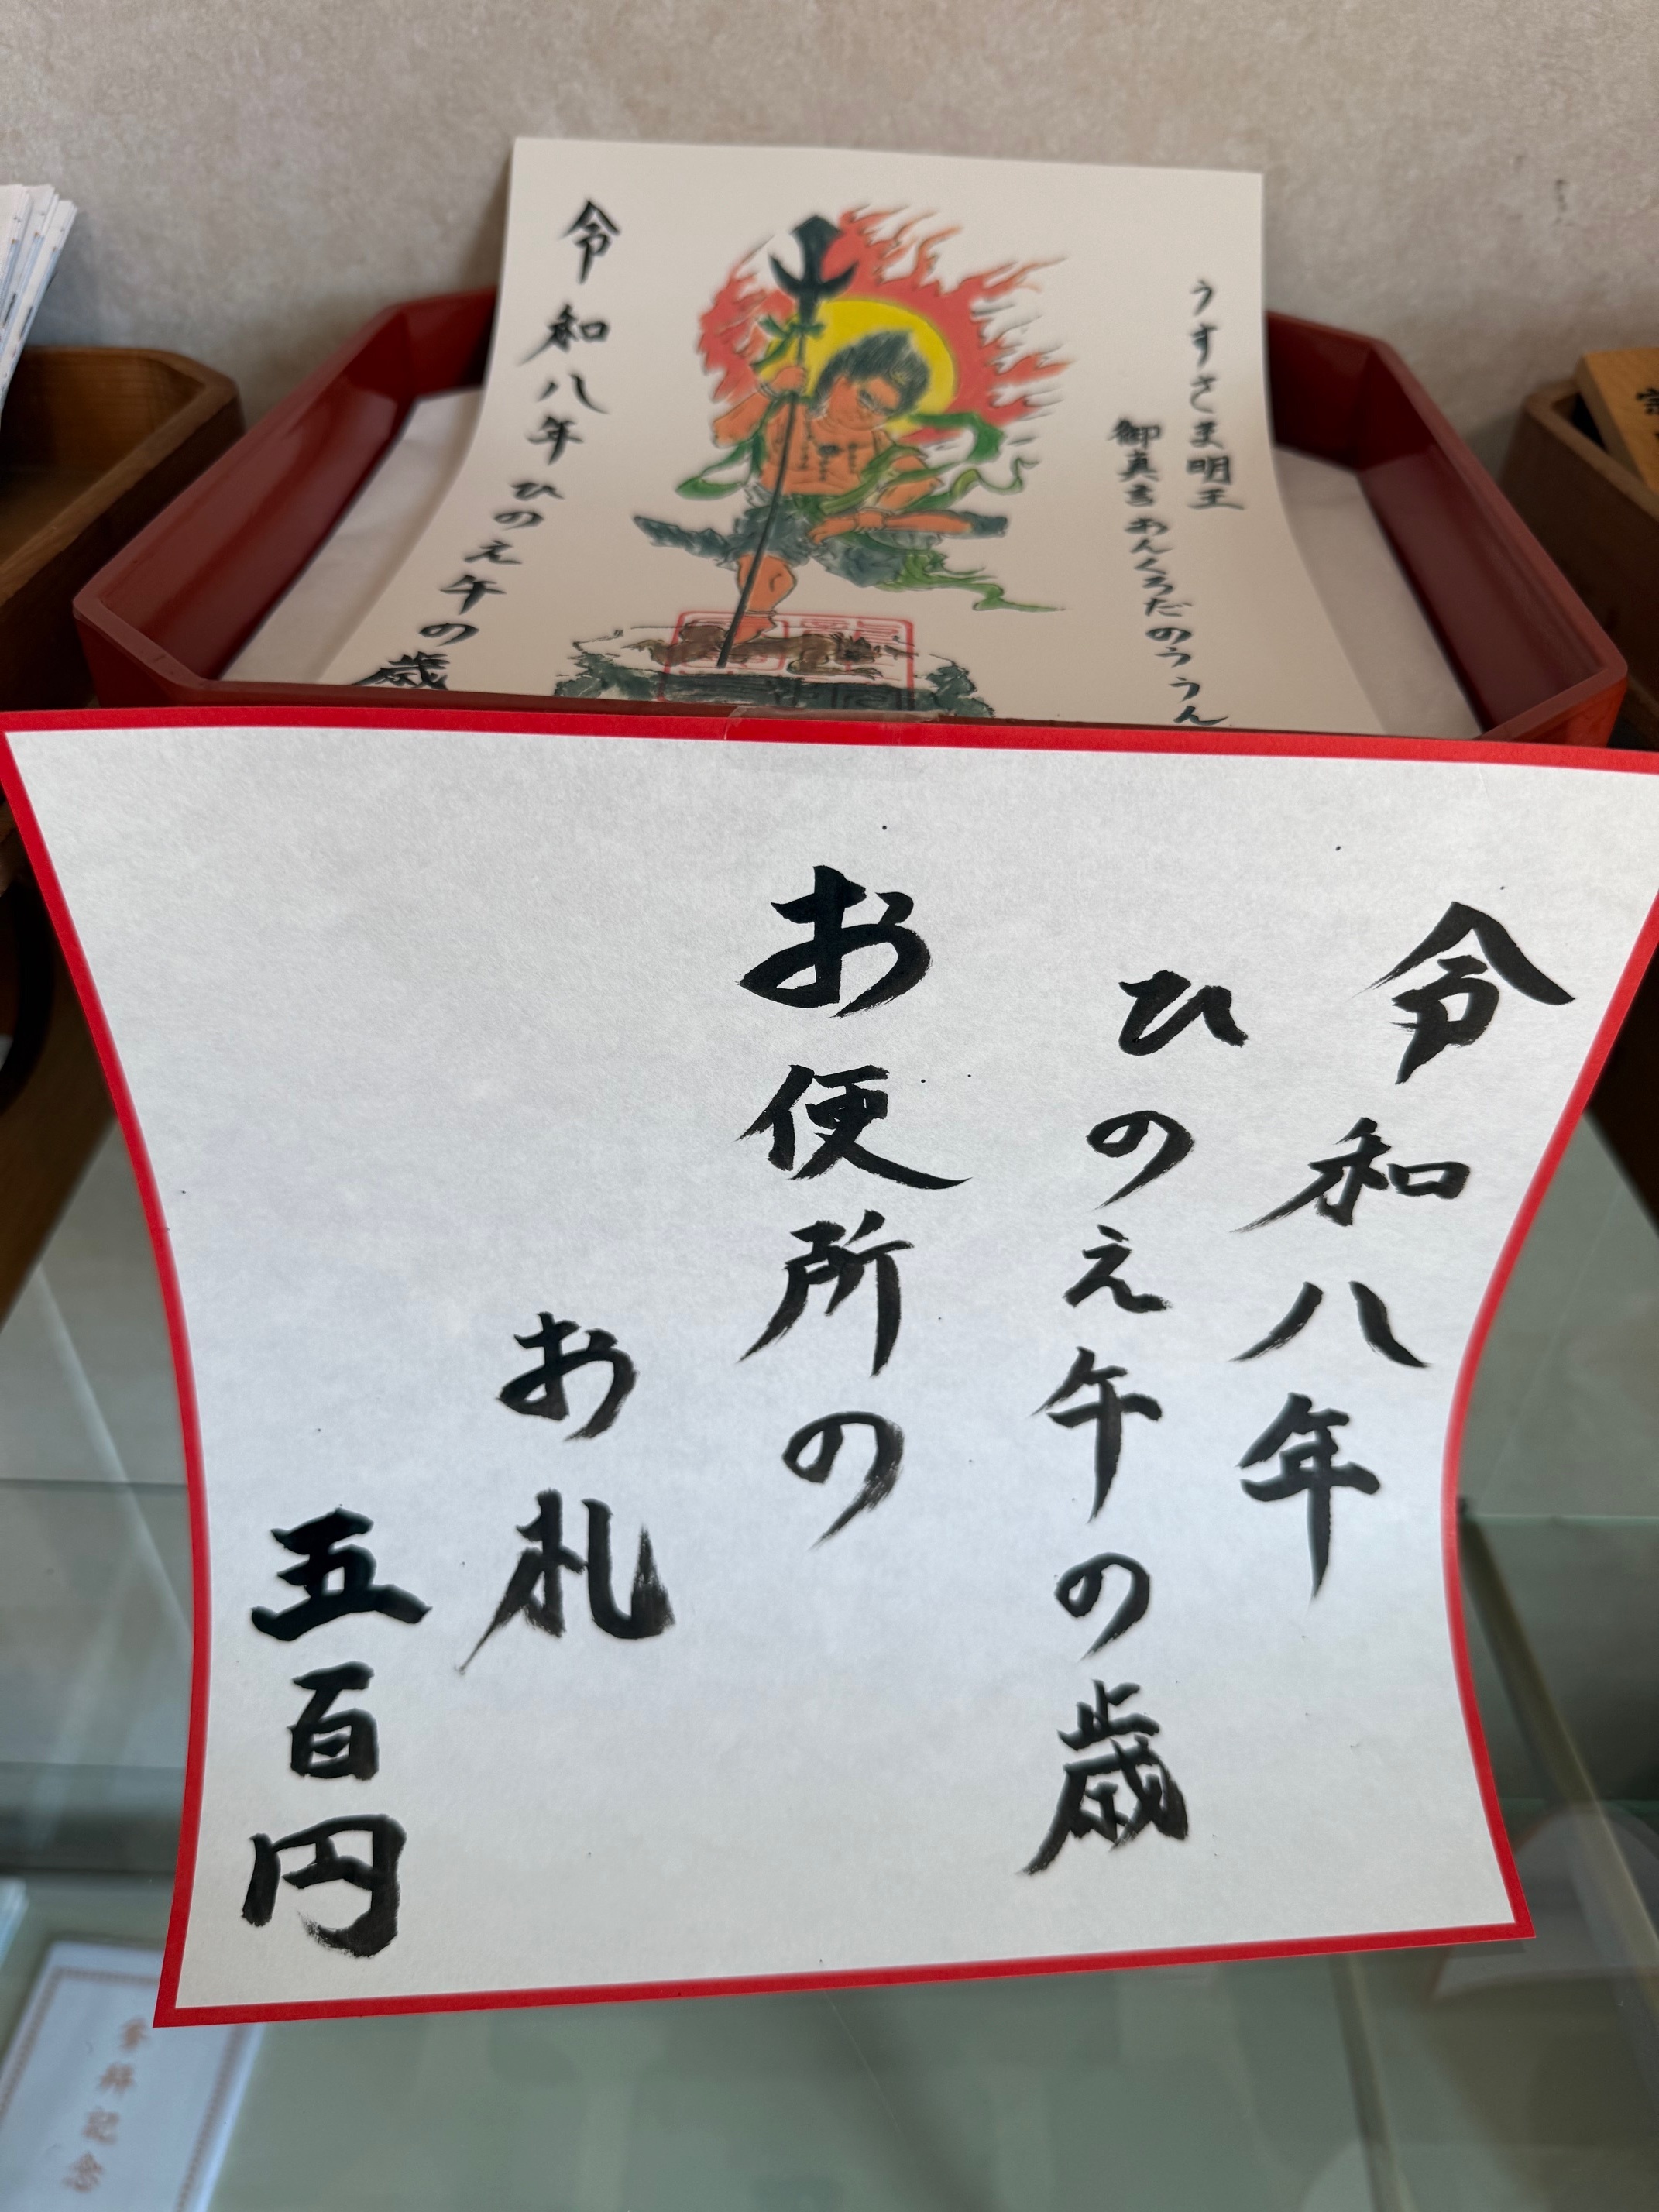 うすさま明王
御真言おんくろだのううん
令和八年ひのえ午の歳
令和八年
ひのえ午の歳
お便所の
お札
五百円
参拝記念